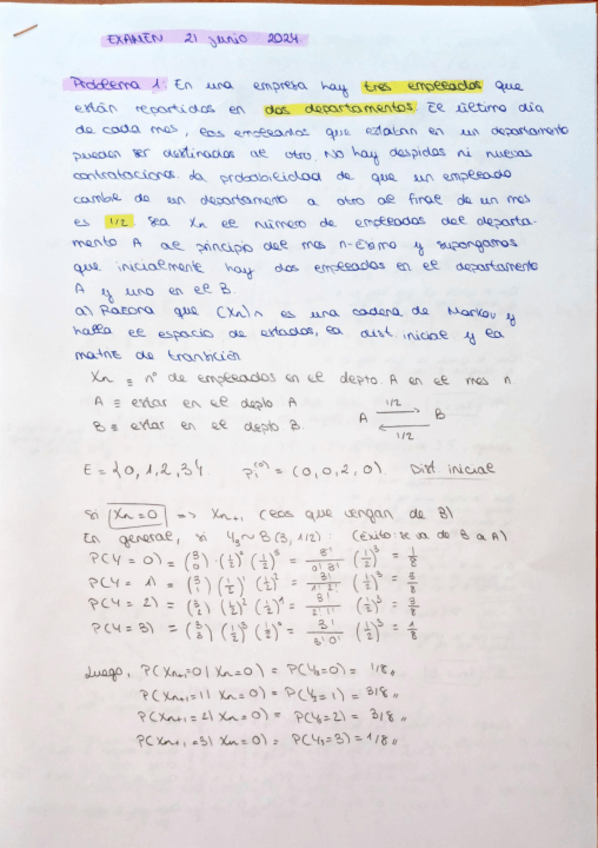 EXAMEN 21 junio 2024.
Problema 1: En una empresa hay tres empleados que
están repartidos en dos departamentos. El último día
de cada mes, los empleados que estaban en un departamento
pueden ser destinados al otro. No hay despidos ni nuevas
contrataciones. La probabilidad de que un empleado
cambie de un departamento a otro al final de un mes
es 1/2. Sea Xn el número de empleados del departa-
mento A al principio del mes n-ésimo y supongamos
que inicialmente hay dos empleados en el departamento
A y uno en el B.
a) Razona que (Xn)n es una cadena de Markov y
halla el espacio de estados, la dist. inicial y la
matriz de transición
Xn ≡ nº de empleados en el depto. A en el mes n.
A ≡ estar en el depto. A
B ≡ estar en el depto. B.
A 1/2 → B
← 1/2
E = {0, 1, 2, 3}. Pi^(0) = (0, 0, 2, 0). Dist. inicial
Si Xn = 0 => Xn+1 (los que vengan de B)
En general, si Y3 ~ B(3, 1/2): (éxito: se va de B a A)
P(Y = 0) = (3 0) · (1/2)^0 (1/2)^3 = 3!/0!3! (1/2)^3 = 1/8
P(Y = 1) = (3 1) (1/2)^1 (1/2)^2 = 3!/1!2! (1/2)^3 = 3/8
P(Y = 2) = (3 2) (1/2)^2 (1/2)^1 = 3!/2!1! (1/2)^3 = 3/8
P(Y = 3) = (3 3) (1/2)^3 (1/2)^0 = 3!/3!0! (1/2)^3 = 1/8
Luego, P(Xn+1=0| Xn=0) = P(Y3=0) = 1/8,,
P(Xn+1=1| Xn=0) = P(Y3=1) = 3/8,,
P(Xn+1=2| Xn=0) = P(Y3=2) = 3/8,,
P(Xn+1=3| Xn=0) = P(Y3=3) = 1/8,,